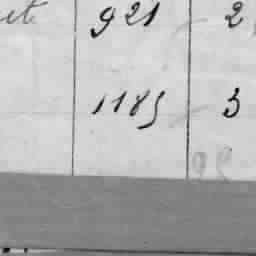 921 2
1185 3